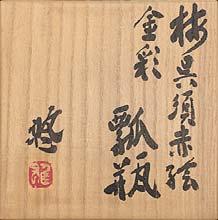 梅呉須赤絵
金彩
瓢瓶
悠